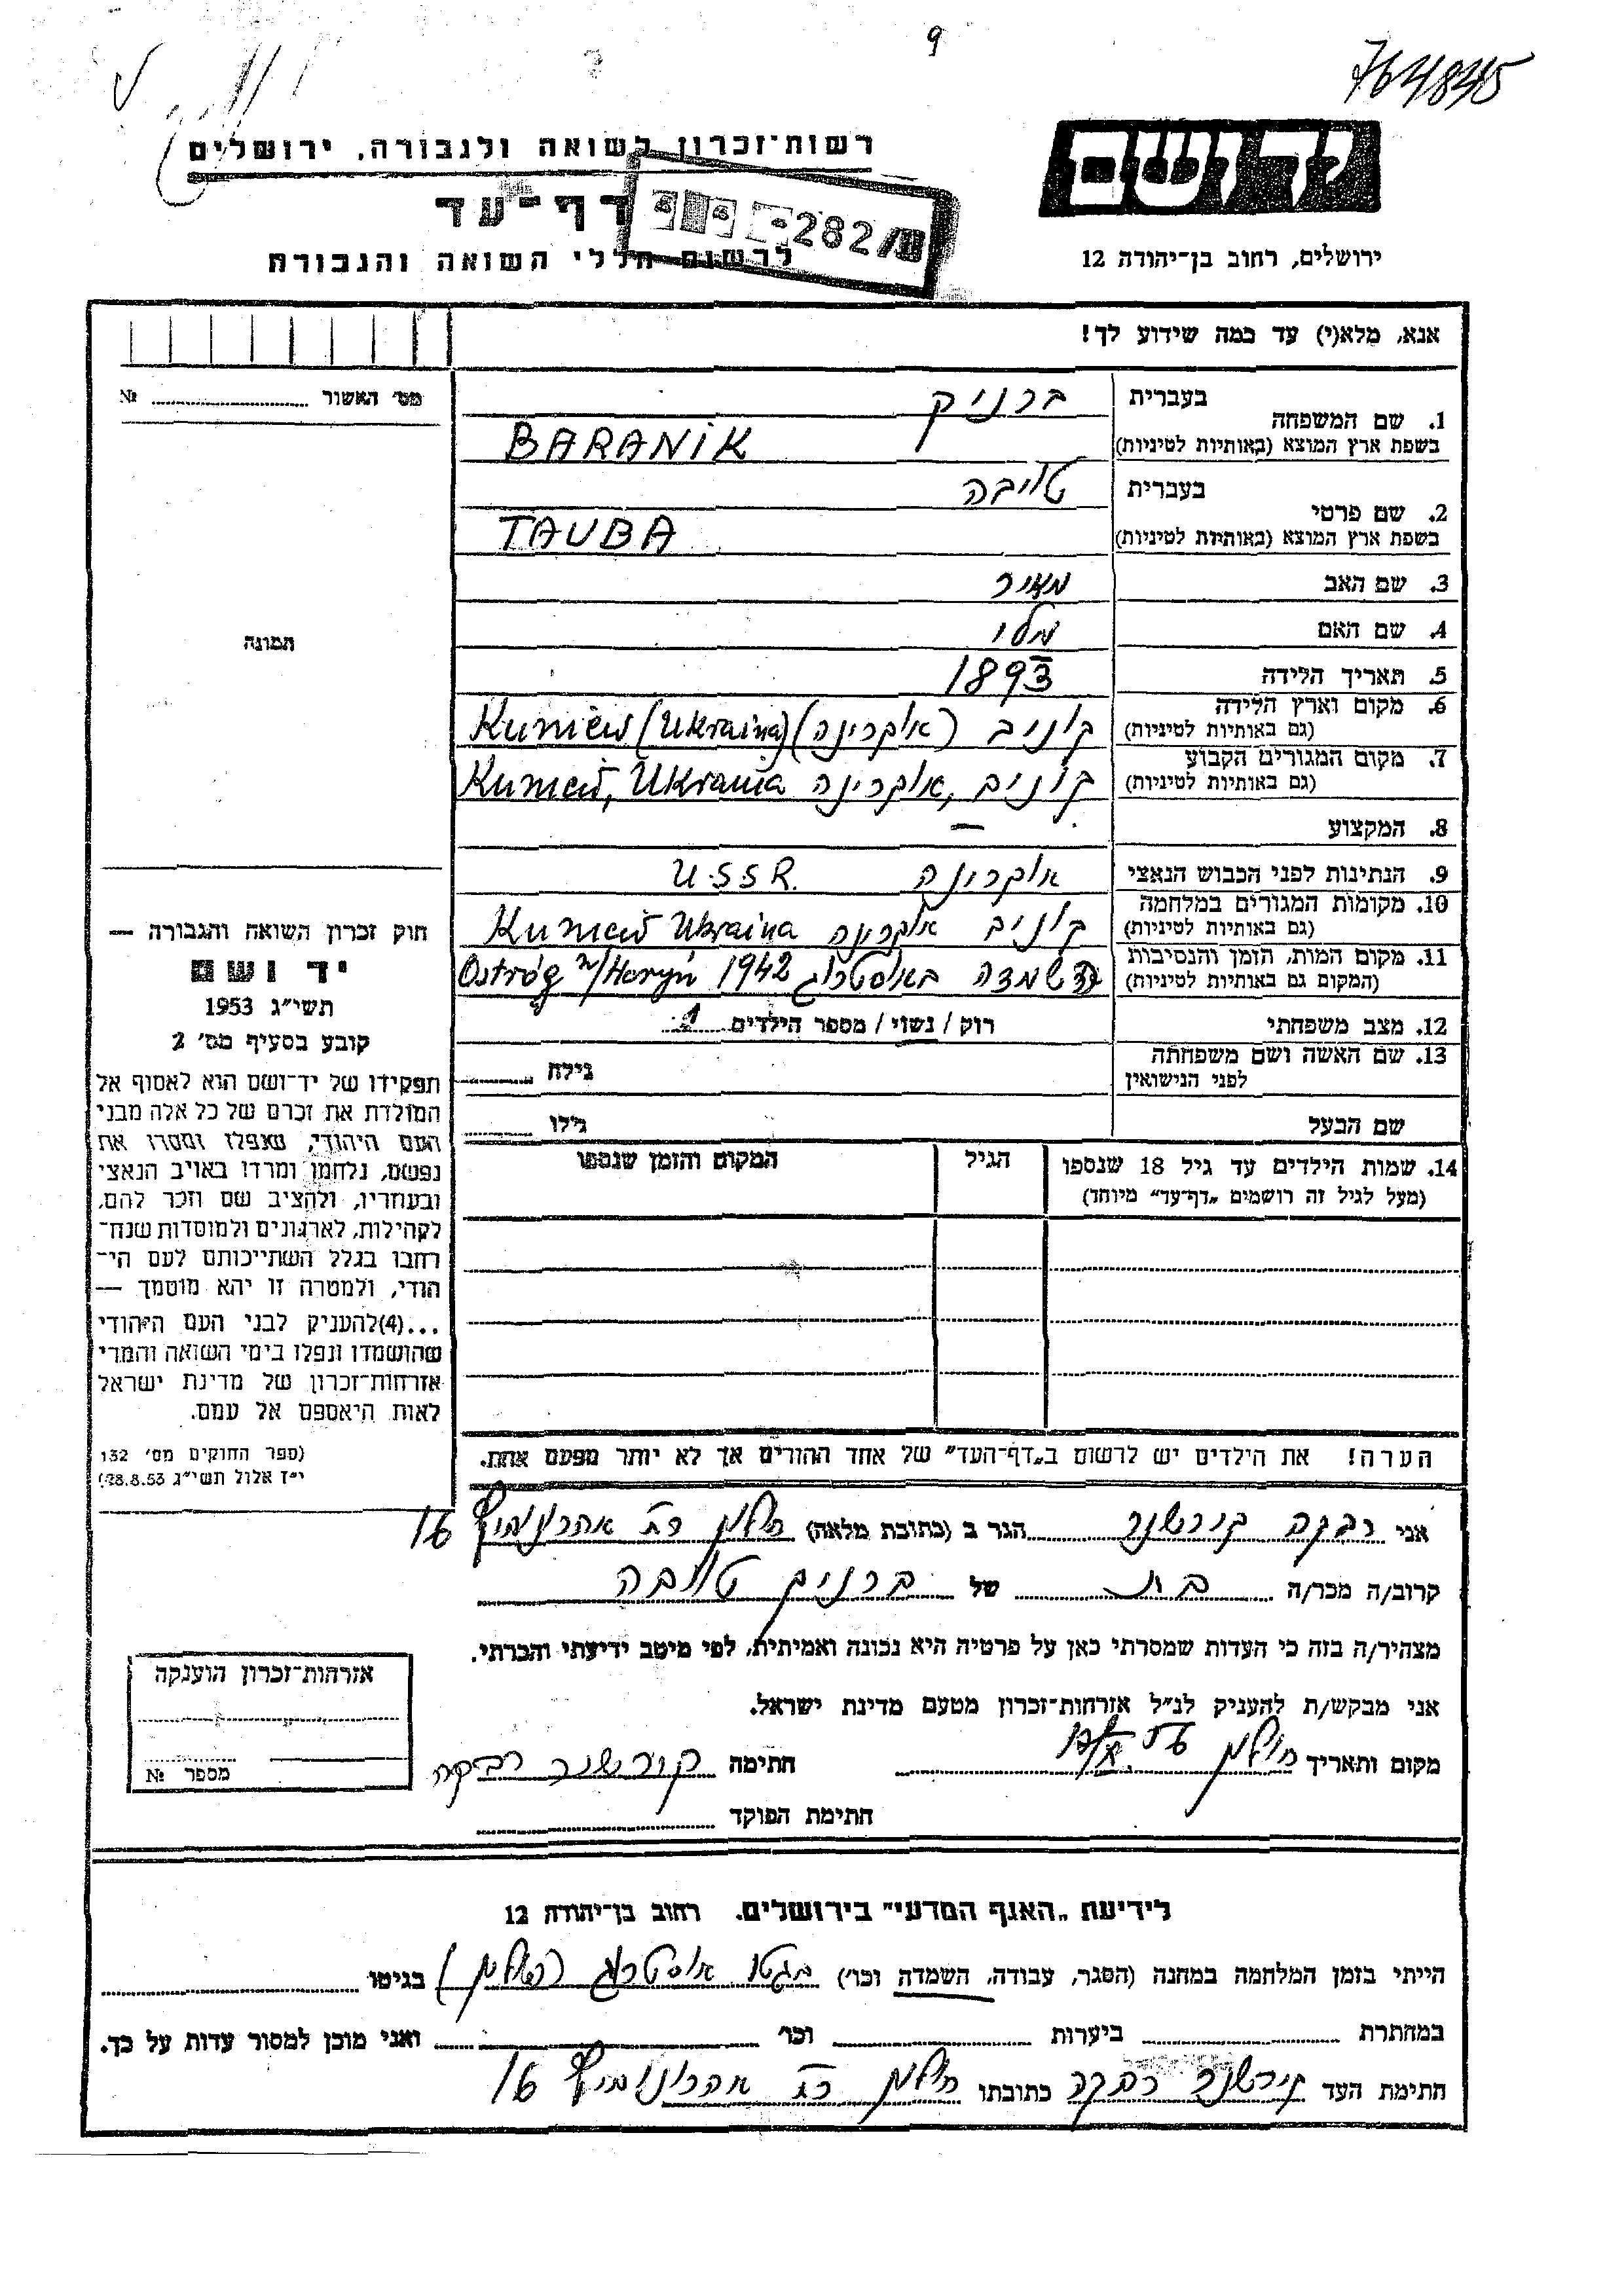 9
764845
רשות־זכרון לשואה ולגבורה, ירושלים
יד ושם
דף־עד
282/
לרשום חללי השואה והגבורה
ירושלים, רחוב בן־יהודה 12
אנא, מלא(י) עד כמה שידוע לך!
מס׳ האשור № 
1. שם המשפחה בעברית ברניק
בשפת ארץ המוצא (באותיות לטיניות) BARANIK
2. שם פרטי בעברית טויבה
בשפת ארץ המוצא (באותיות לטיניות) TAUBA
3. שם האב מאיר
4. שם האם
5. תאריך הלידה 1893
6. מקום וארץ הלידה (גם באותיות לטיניות) קוניב (אוקרינה) Kuniew (Ukraina)
7. מקום המגורים הקבוע (גם באותיות לטיניות) קוניב, אוקרינה Kuniew, Ukraina
8. המקצוע —
9. הנתינות לפני הכבוש הנאצי אוקרינה U.S.S.R.
10. מקומות המגורים במלחמה (גם באותיות לטיניות) קוניב אוקרינה Kuniew Ukraina
11. מקום המות, הזמן והנסיבות (המקום גם באותיות לטיניות) השמדה באוסטרוג 1942 Ostróg n/Horyń
12. מצב משפחתי רוק / נשוי / מספר הילדים 1
13. שם האשה ושם משפחתה לפני הנישואין גילה
שם הבעל גילו
14. שמות הילדים עד גיל 18 שנספו הגיל המקום והזמן שנספו
(מעל לגיל זה רושמים „דף־עד" מיוחד)
הערה! את הילדים יש לרשום ב„דף־העד" של אחד ההורים אך לא יותר מפעם אחת.
תמונה
חוק זכרון השואה והגבורה —
יד ושם
תשי״ג 1953
קובע בסעיף מס׳ 2
תפקידו של יד־ושם הוא לאסוף אל
המולדת את זכרם של כל אלה מבני
העם היהודי, שנפלו ומסרו את
נפשם, נלחמו ומרדו באויב הנאצי
ובעוזריו, ולהציב שם וזכר להם,
לקהילות, לארגונים ולמוסדות שנח־
רבו בגלל השתייכותם לעם הי־
הודי, ולמטרה זו יהא מוסמך —
...(4)להעניק לבני העם היהודי
שהושמדו ונפלו בימי השואה והמרי
אזרחות־זכרון של מדינת ישראל
לאות היאספם אל עמם.
(ספר החוקים מס׳ 132
י״ז אלול תשי״ג 28.8.53)
אני רבקה קירשנר הגר ב (כתובת מלאה) חולון רח׳ אהרונוביץ 16
קרוב/ה מכר/ה בת של ברניק טויבה
מצהיר/ה בזה כי העדות שמסרתי כאן על פרטיה היא נכונה ואמיתית, לפי מיטב ידיעתי והכרתי.
אני מבקש/ת להעניק לנ״ל אזרחות־זכרון מטעם מדינת ישראל.
מקום ותאריך חולון חתימה קירשנר רבקה
חתימת הפוקד
אזרחות־זכרון הוענקה
מספר №
לידיעת „האגף המדעי" בירושלים. רחוב בן־יהודה 12
הייתי בזמן המלחמה במחנה (הסגר, עבודה, השמדה וכו׳) בגטו אוסטרוג בגיטו
במחתרת ביערות וכו׳ ואני מוכן למסור עדות על כך.
חתימת העד קירשנר רבקה כתובתו חולון רח׳ אהרונוביץ 16